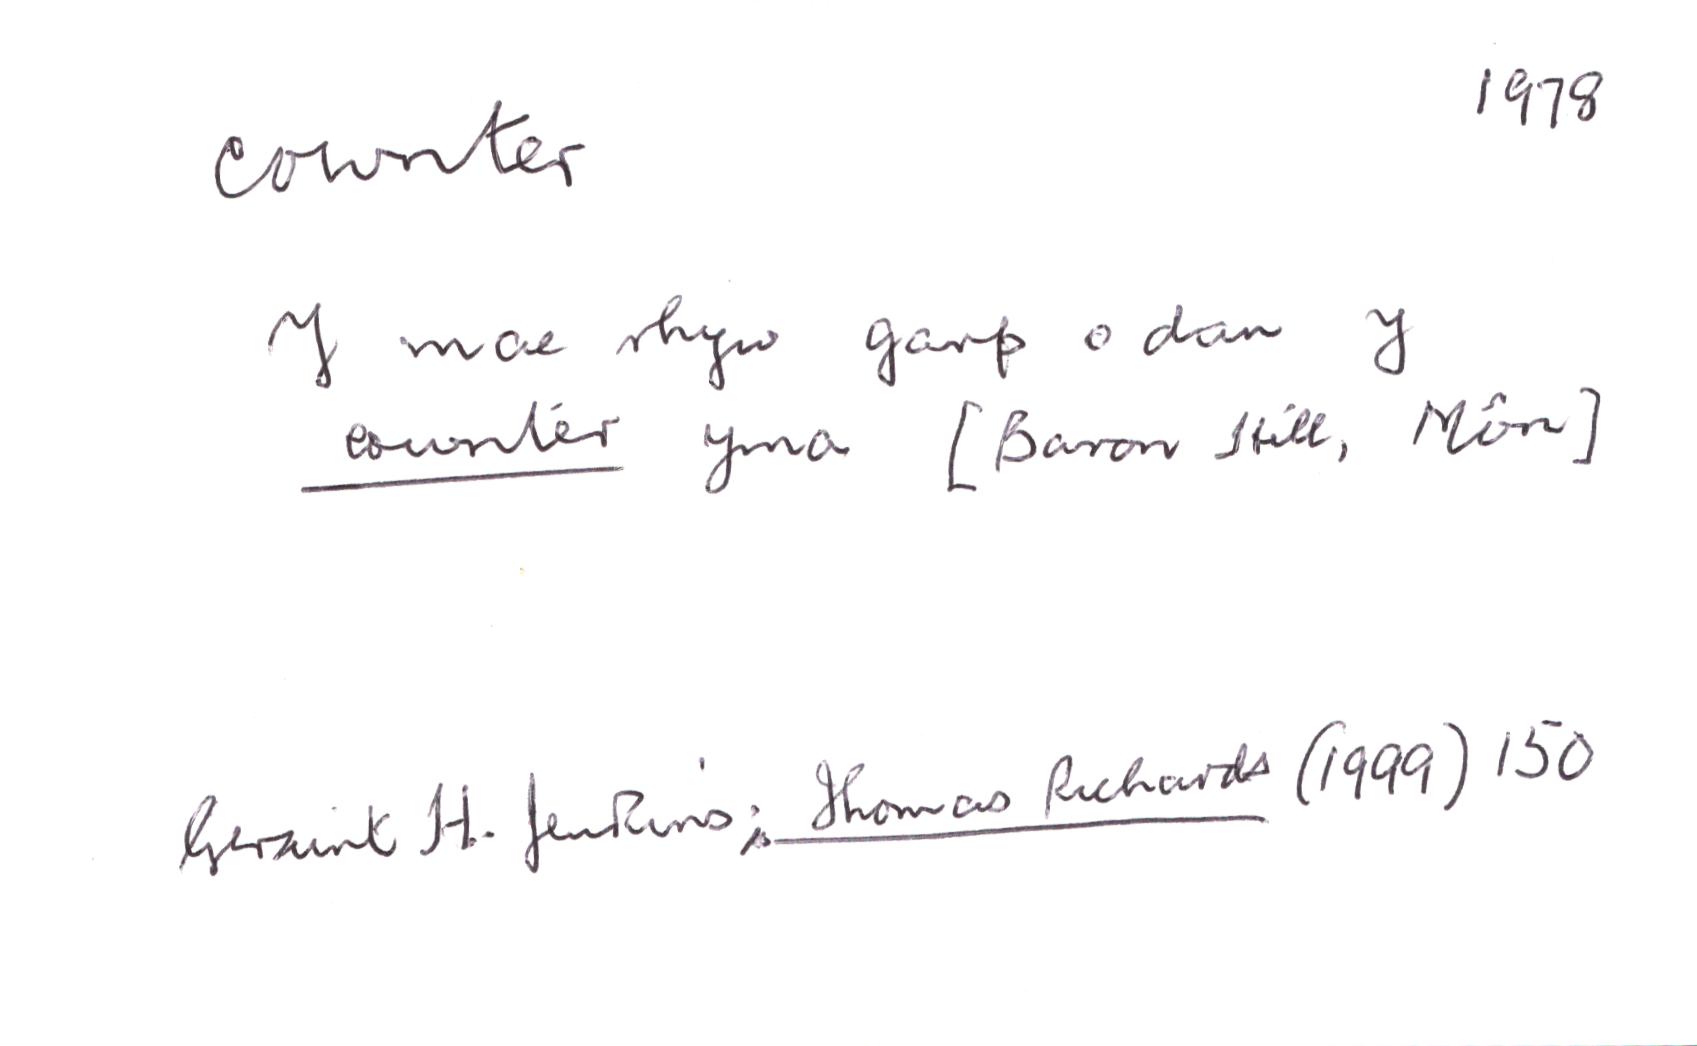 1978
cownter
Y mae rhyw garp o dan y
counter yma [Baron Hill, Môn]
Geraint H. Jenkins; Thomas Richards (1999) 150